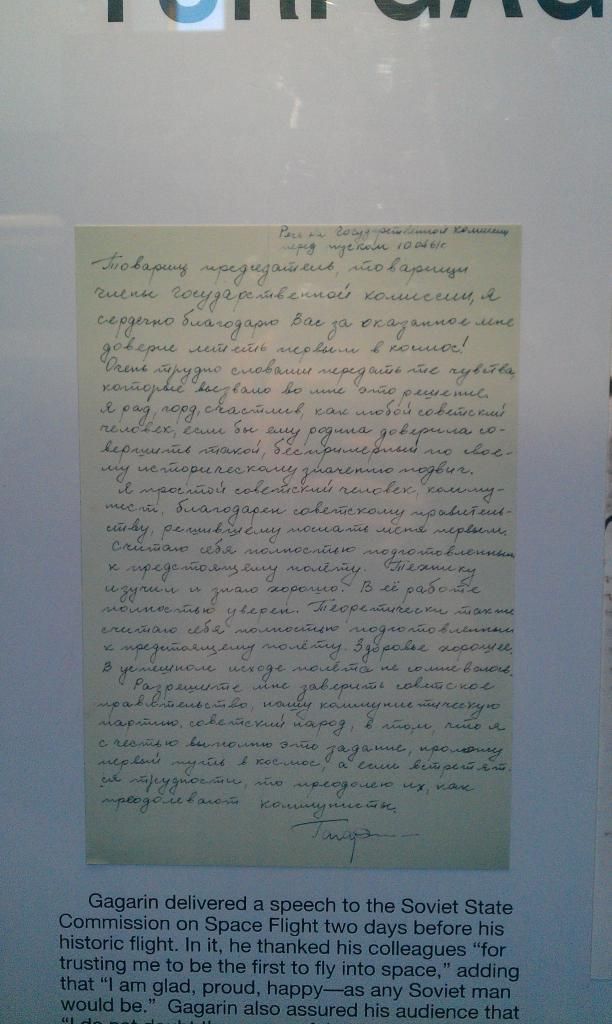 YURI GAG
Речь на Государственной комиссии
перед пуском 10.04.61 г.
Товарищ председатель, товарищи
члены Государственной комиссии, я
сердечно благодарю Вас за оказанное мне
доверие лететь первым в космос!
Очень трудно словами передать те чувства,
которые вызвало во мне это решение.
Я рад, горд, счастлив, как любой советский
человек, если бы ему родина доверила со-
вершить такой, беспримерный по свое-
му историческому значению подвиг.
Я простой советский человек, комму-
нист, благодарен советскому правитель-
ству, решившему послать меня первым.
Считаю себя полностью подготовленным
к предстоящему полёту. Технику
изучил и знаю хорошо. В её работе
полностью уверен. Теоретически также
считаю себя полностью подготовленным
к предстоящему полёту. Здоровье хорошее.
В успешном исходе полёта не сомневаюсь.
Разрешите мне заверить советское
правительство, нашу коммунистическую
партию, советский народ, в том, что я
с честью выполню это задание, проложу
первый путь в космос, а если встретят-
ся трудности, то преодолею их, как
преодолевают коммунисты.
Гагарин
Gagarin delivered a speech to the Soviet State
Commission on Space Flight two days before his
historic flight. In it, he thanked his colleagues “for
trusting me to be the first to fly into space,” adding
that “I am glad, proud, happy—as any Soviet man
would be.” Gagarin also assured his audience that
“I do not doubt the